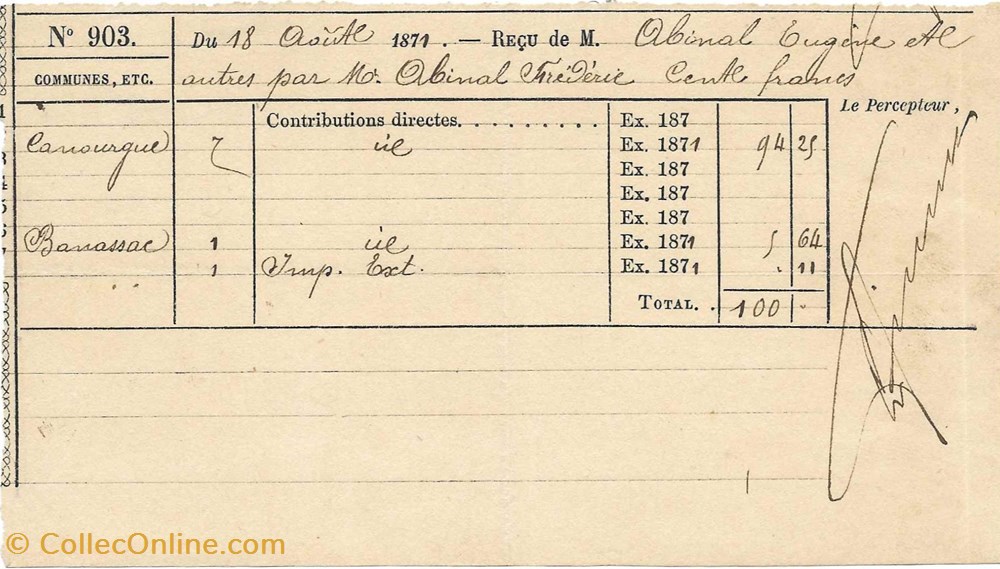 N° 903. Du 18 Août 1871. — Reçu de M. Abinal Eugène et
COMMUNES, ETC. autres par Mr. Abinal Frédéric Cent francs
Le Percepteur,
Contributions directes......... Ex. 187
Canourgue 7 Ex. 1871 94 25
Ex. 187
Ex. 187
Ex. 187
Banassac 1 Ex. 1871 5 64
1 Imp. Ext. Ex. 1871 . 11
TOTAL. . 100 .
© CollecOnline.com